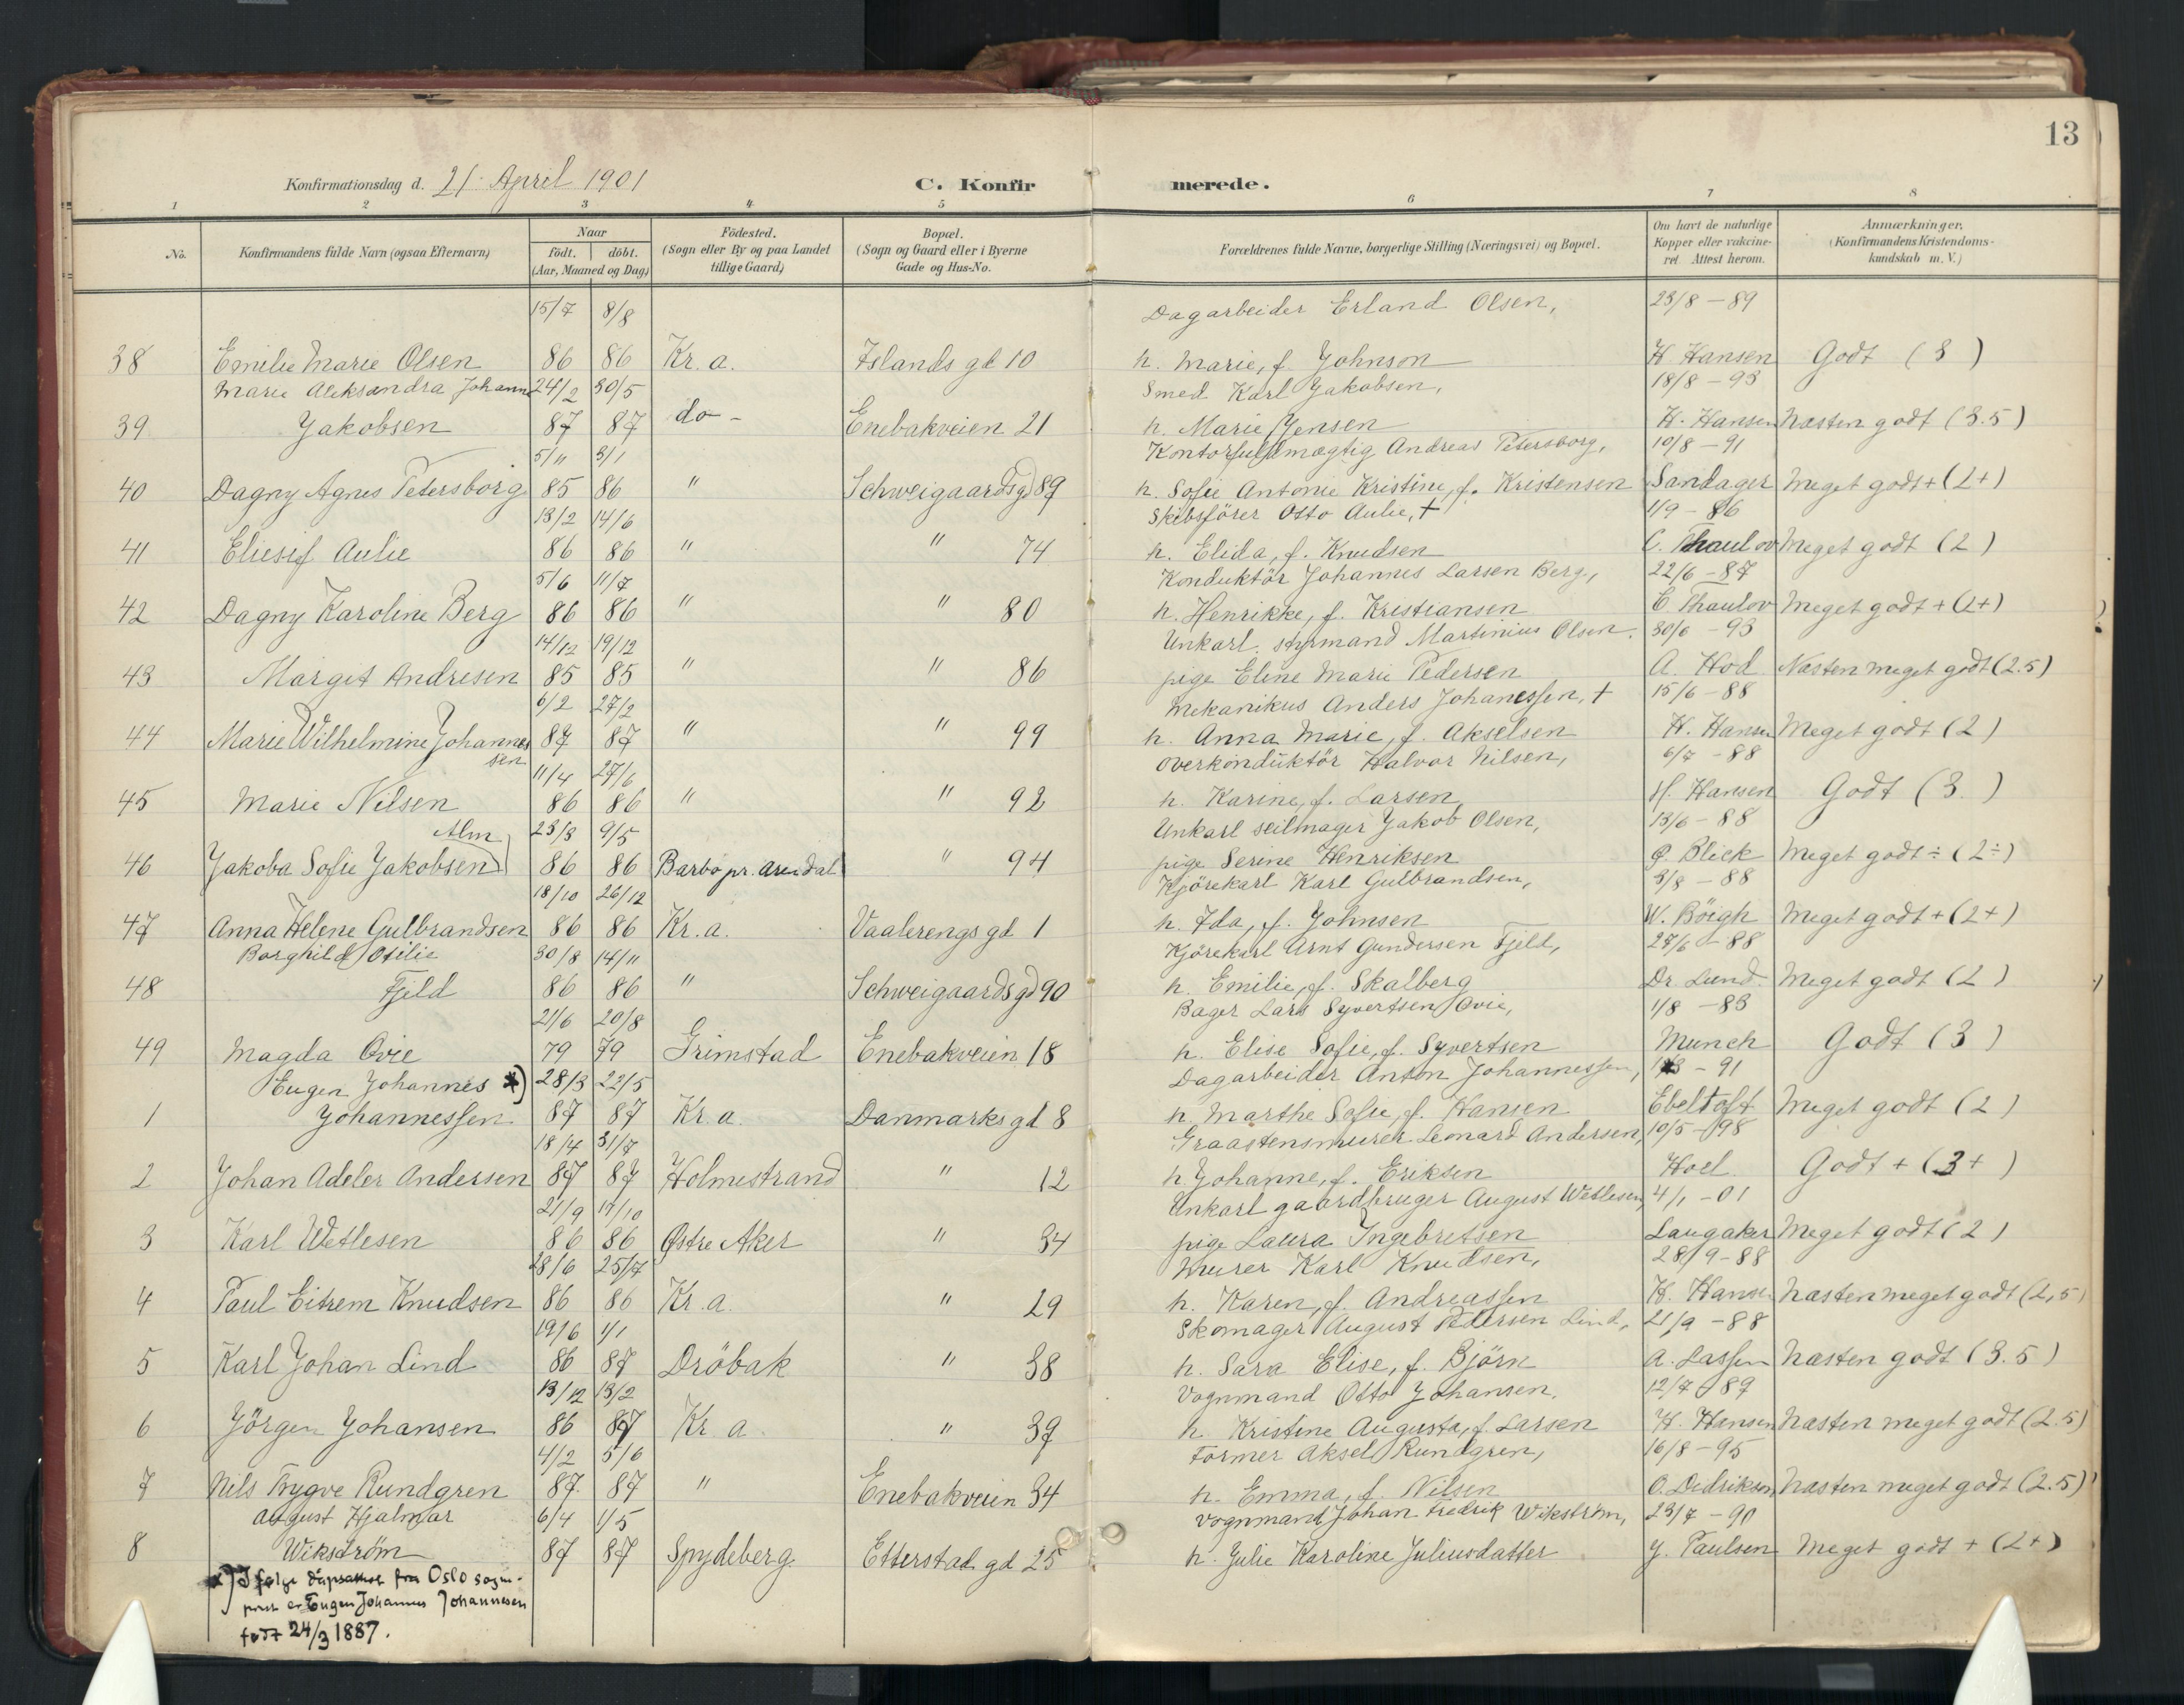 13
Konfirmationsdag d. 21. April 1901
C. Konfirmerede.
1 2 3 4 5 6 7 8
No. Konfirmandens fulde Navn (ogsaa Efternavn) Naar Födt. döbt. (Aar, Maaned og Dag) Födested. (Sogn eller By og paa Landet tillige Gaard) Bopæl. (Sogn og Gaard eller i Byerne Gade og Hus-No. Forældrenes fulde Navne, borgerlige Stilling (Næringsvei) og Bopæl. Om havt de naturlige Kopper eller vakcineret. Attest herom. Anmærkninger, (Konfirmandens Kristendomskundskab m. V.)
15/7 8/8 Dagarbeider Erland Olsen, 23/8 – 89
38 Emilie Marie Olsen 86 86 Kr. a. Islands gd 10 h. Marie, f. Johnson H. Hansen Godt (3)
Marie Aleksandra Johanne 24/2 30/5 Smed Karl Jakobsen, 18/8 – 93
39 Jakobsen 87 87 do – Enebakveien 21 h. Marie Jensen H. Hansen Næsten godt (3.5)
5/11 3/1 Kontorfuldmægtig Andreas Petersborg, 10/8 – 91
40 Dagny Agnes Petersborg 85 86 " Schweigaardsgd 89 h. Sofie Antonie Kristine, f. Kristensen Sandager Meget godt + (2+)
13/2 14/6 Skibsförer Otto Aulie, † 1/9 – 86
41 Eliesif Aulie 86 86 " " 74 h. Elida, f. Knudsen C. Thaulov Meget godt (2)
5/6 11/7 Konduktör Johannes Larsen Berg, 22/6 – 87
42 Dagny Karoline Berg 86 86 " " 80 h. Henrikke, f. Kristiansen C Thaulov Meget godt + (2+)
14/12 19/12 Unkarl. styrmand Martinius Olsen. 30/6 – 93
43 Margit Andresen 85 85 " " 86 pige Eline Marie Pedersen A. Hod Næsten meget godt (2.5)
6/2 27/2 Mekanikus Anders Johanessen, † 15/6 – 88
44 Marie Wilhelmine Johannes 87 87 " " 99 h. Anna Marie, f. Akselsen H. Hansen Meget godt (2)
sen 11/4 27/6 Overkonduktör Halvor Nilsen, 6/7 – 88
45 Marie Nilsen 86 86 " " 92 h. Karine, f. Larsen H. Hansen Godt (3.)
Alm 23/3 9/5 Unkarl seilmager Jakob Olsen, 13/6 – 88
46 Jakoba Sofie Jakobsen 86 86 Barbo pr. Arendal " 94 pige Serine Henriksen Ø. Blick Meget godt ÷ (2÷)
18/10 26/12 Kjörekarl Karl Gulbrandsen, 3/8 – 88
47 Anna Helene Gulbrandsen 86 86 Kr. a. Vaalerengs gd 1 h. Ida, f. Johnsen W. Böigh Meget godt + (2+)
Borghild Otilie 30/8 14/11 Kjörekarl Arnt Gundersen Fjeld, 27/6 – 88
48 Fjeld 86 86 " Schweigaardsgd 90 h. Emilie, f. Skalberg Dr. Lund. Meget godt (2)
21/6 20/8 Bager Lars Syvertsen Ovie, 1/8 – 83
49 Magda Ovie 79 79 Grimstad Enebakveien 18 h. Elise Sofie, f. Syvertsen Munch Godt (3)
Eugen Johannes *) 28/3 22/5 Dagarbeider Anton Johannessen, – 91
1 Johannessen 87 87 Kr. a. Danmarks gd 8 h. Marthe Sofie, f. Hansen Ebeltoft Meget godt (2)
18/4 31/7 Graastensmurer Leonard Andersen, 10/5 – 98
2 Johan Adeler Andersen 87 87 Holmestrand " 12 h. Johanne, f. Eriksen Hoel Godt + (3+)
21/9 17/10 Unkarl gaardbruger August Wetlesen, 4/1 – 01
3 Karl Wetlesen 86 86 Østre Aker " 34 pige Laura Ingebretsen Langaker Meget godt (2)
28/6 25/7 Murer Karl Knudsen, 28/9 – 88
4 Paul Eitrem Knudsen 86 86 Kr. a. " 29 h. Karen, f. Andreassen H. Hansen Næsten meget godt (2,5)
19/6 1/1 Skomager August Pedersen Lind, 21/9 – 88
5 Karl Johan Lind 86 87 Dröbak " 38 h. Sara Elise, f. Björn A. Lassen Næsten godt (3.5)
13/12 13/2 Vognmand Otto Johansen, 12/7 89
6 Jörgen Johansen 86 87 Kr. a. " 39 h. Kristine Augusta, f. Larsen H. Hansen Næsten meget godt (2.5)
4/2 5/6 Former Aksel Rundgren, 16/8 – 95
7 Nils Trygve Rundgren 87 87 " Enebakveien 34 h. Emma, f. Nilsen O. Didriksen Næsten meget godt (2.5)
August Hjalmar 6/4 1/5 Vognmand Johan Fredrik Wikström, 23/7 – 90
8 Wikström 87 87 Spydeberg Etterstad gd 25 h. Julie Karoline Juliusdatter J. Paulsen Meget godt + (2+)
*) Ifølge dåpsattest fra Oslo sogne-
prest er Eugen Johannes Johannessen
født 24/3 1887.